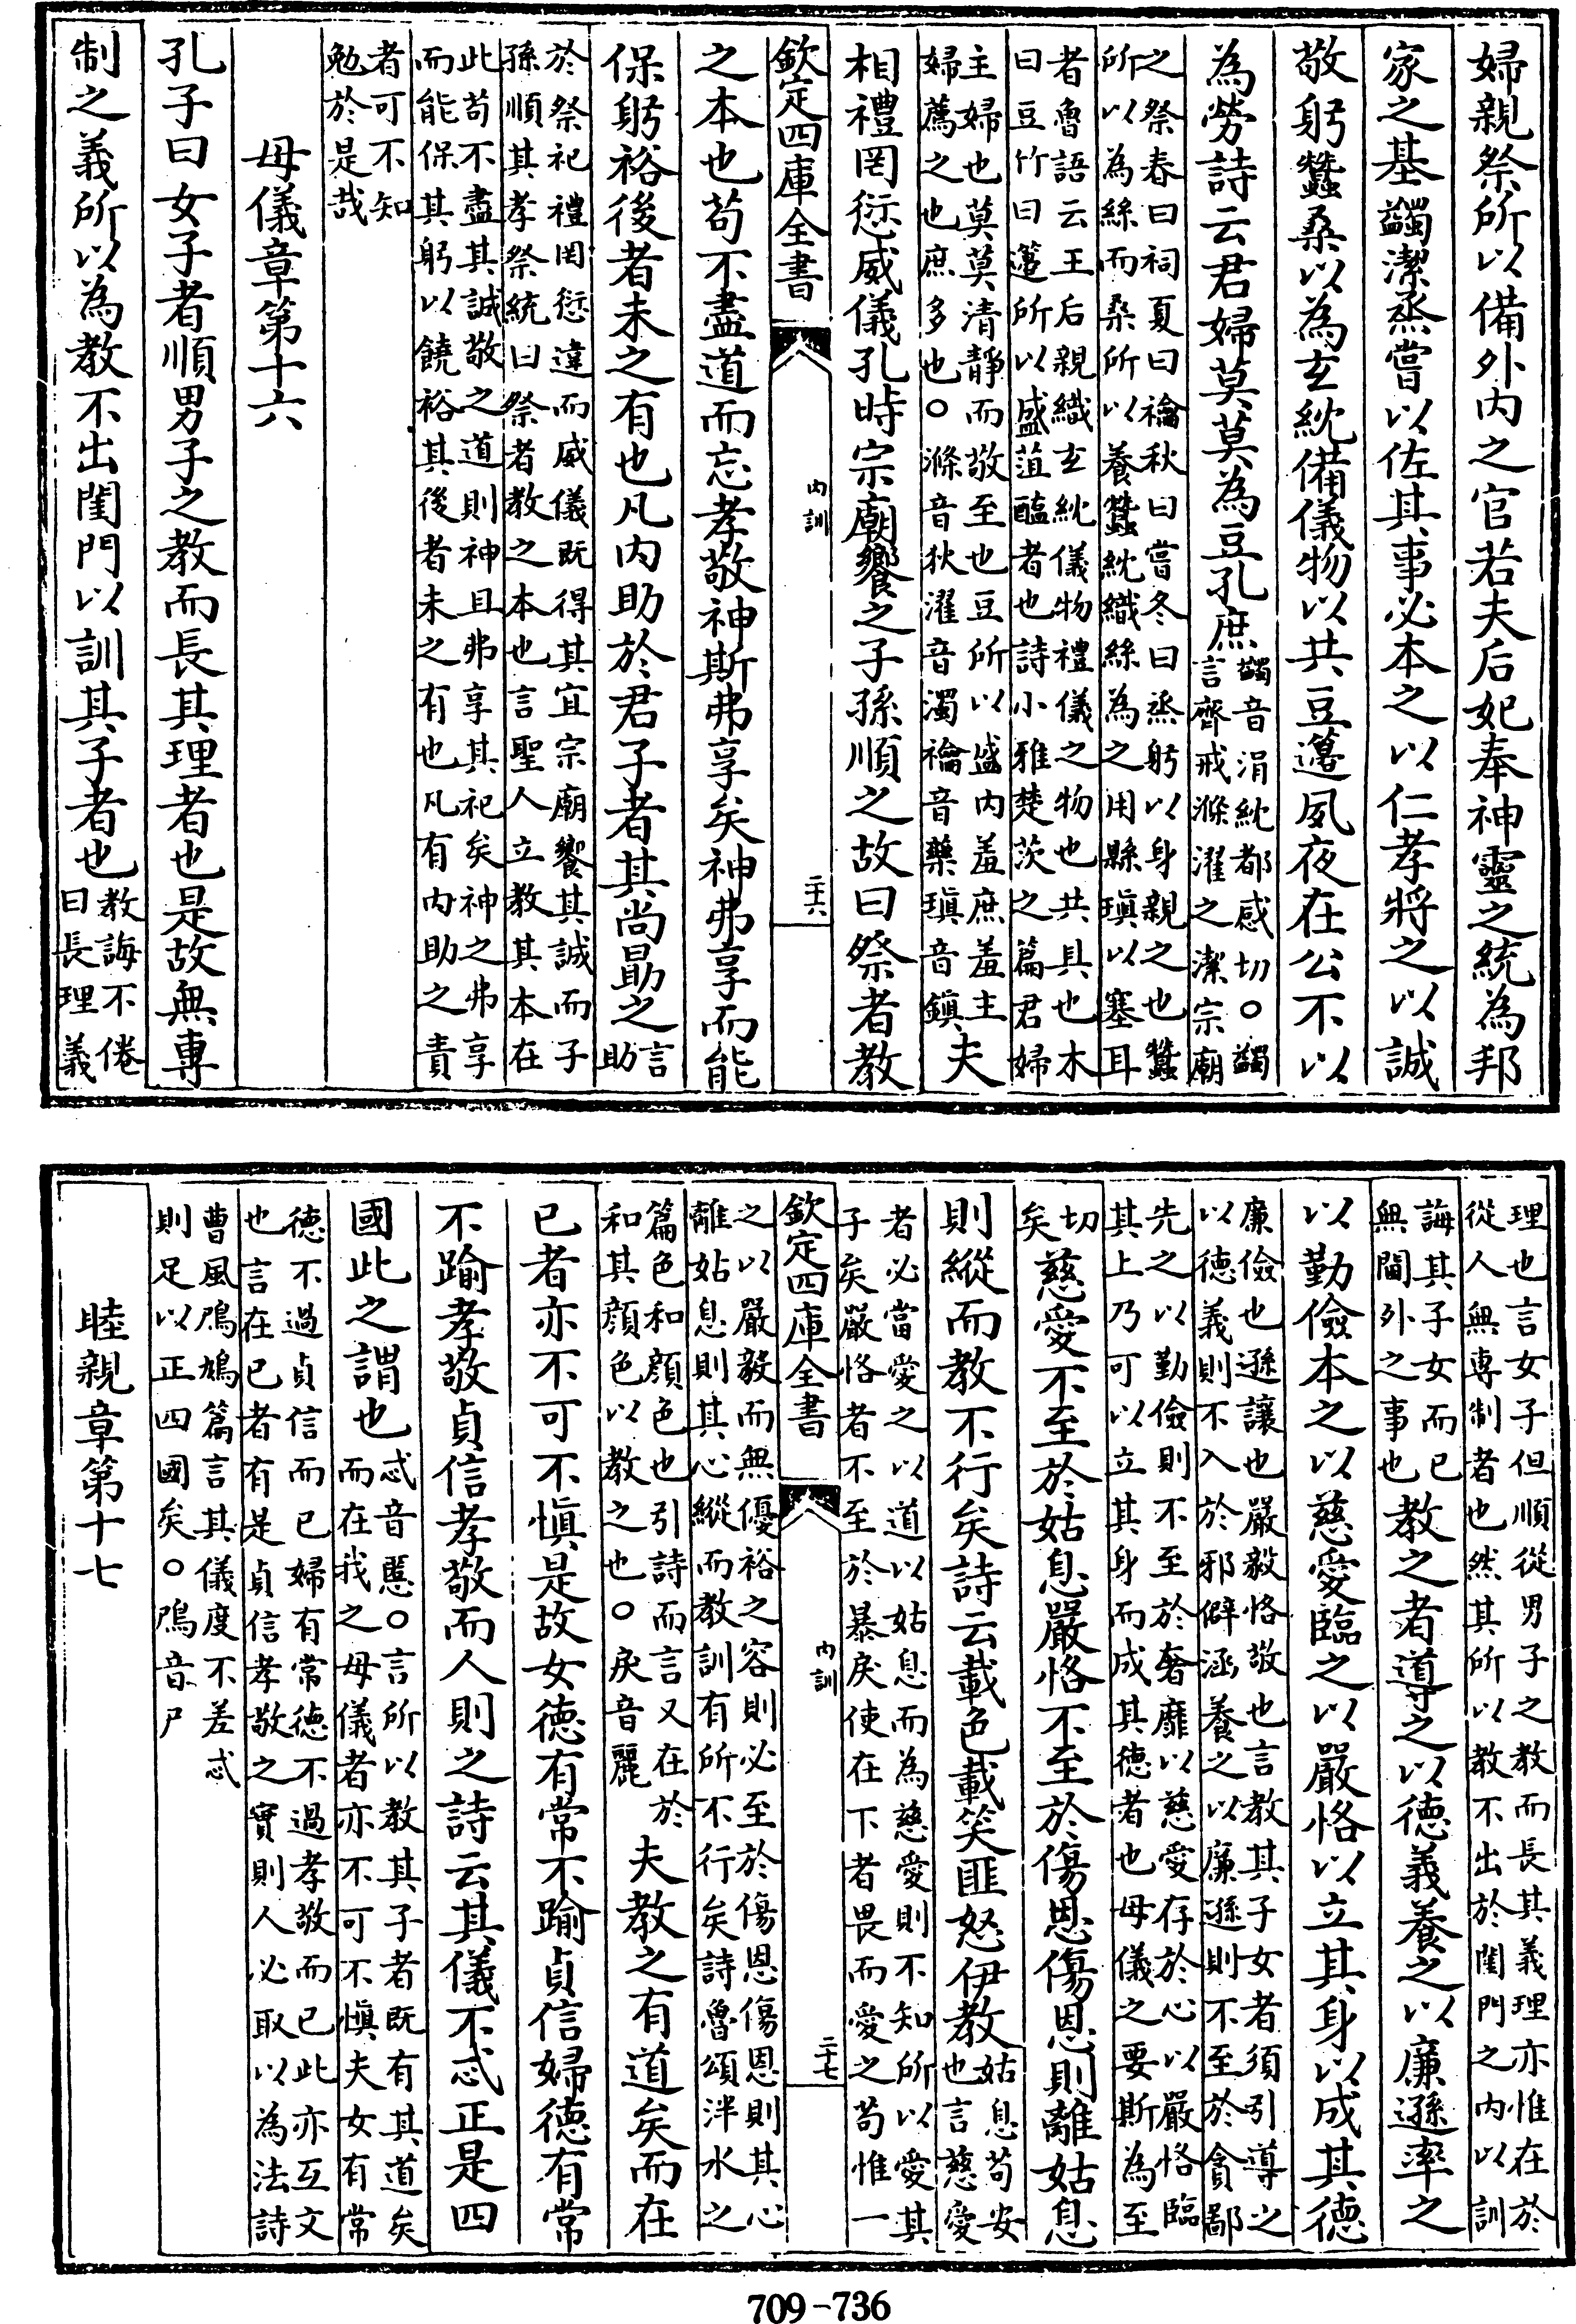 婦親祭所以備外内之官若夫后妃奉神靈之統為邦
家之基蠲潔烝嘗以佐其事必本之以仁孝將之以誠
敬躬蠶桑以為玄紞備儀物以共豆籩夙夜在公不以
為勞詩云君婦莫莫為豆孔庶蠲音涓紞都感切○蠲
言齊戒滌濯之潔宗廟
之祭春曰祠夏曰禴秋曰嘗冬曰烝躬以身親之也蠶
所以為絲而桑所以養蠶紞織絲為之用縣瑱以塞耳
者魯語云王后親織玄紞儀物禮儀之物也共具也木
曰豆竹曰籩所以盛葅醢者也詩小雅楚茨之篇君婦
主婦也莫莫清靜而敬至也豆所以盛内羞庶羞主
婦薦之也庶多也○滌音狄濯音濁禴音藥瑱音鎮夫
相禮罔愆威儀孔時宗廟饗之子孫順之故曰祭者教
欽定四庫全書
内訓
二十六
之本也苟不盡道而忘孝敬神斯弗享矣神弗享而能
保躬裕後者未之有也凡内助於君子者其尚勗之言
助
於祭祀禮罔愆違而威儀既得其宜宗廟饗其誠而子
孫順其孝祭統曰祭者教之本也言聖人立教其本在
此苟不盡其誠敬之道則神且弗享其祀矣神之弗享
而能保其躬以饒裕其後者未之有也凡有内助之責
者可不知
勉於是哉
母儀章第十六
孔子曰女子者順男子之教而長其理者也是故無專
制之義所以為教不出閨門以訓其子者也教誨不倦
曰長理義
理也言女子但順從男子之教而長其義理亦惟在於
從人無專制者也然其所以教不出於閨門之内以訓
誨其子女而已
無閫外之事也教之者導之以德義養之以廉遜率之
以勤儉本之以慈愛臨之以嚴恪以立其身以成其德
廉儉也遜讓也嚴毅恪敬也言教其子女者須引導之
以德義則不入於邪僻涵養之以廉遜則不至於貪鄙
先之以勤儉則不至於奢靡以慈愛存於心以嚴恪臨
其上乃可以立其身而成其德者也母儀之要斯為至
切
矣慈愛不至於姑息嚴恪不至於傷恩傷恩則離姑息
則縱而教不行矣詩云載色載笑匪怒伊教姑息苟安
也言慈愛
者必當愛之以道以姑息而為慈愛則不知所以愛其
子矣嚴恪者不至於暴戾使在下者畏而愛之苟惟一
欽定四庫全書
内訓
二十七
之以嚴毅而無優裕之容則必至於傷恩傷恩則其心
離姑息則其心縱而教訓有所不行矣詩魯頌泮水之
篇色和顔色也引詩而言又在於
和其顔色以教之也○戾音麗夫教之有道矣而在
已者亦不可不慎是故女德有常不踰貞信婦德有常
不踰孝敬貞信孝敬而人則之詩云其儀不忒正是四
國此之謂也忒音慝○言所以教其子者既有其道矣
而在我之母儀者亦不可不慎夫女有常
德不過貞信而已婦有常德不過孝敬而已此亦互文
也言在已者有是貞信孝敬之實則人必取以為法詩
曹風鳲鳩篇言其儀度不差忒
則足以正四國矣○鳲音尸
睦親章第十七
709-736